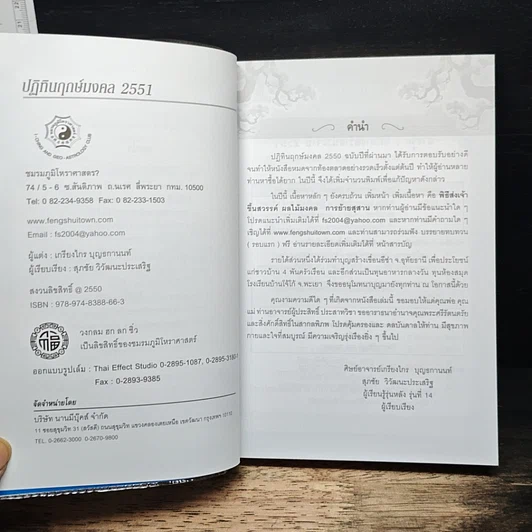 ปฏิทินฤกษ์มงคล 2551
ชมรมภูมิโหราศาสตร์?
74 / 5 - 6 ซ.สันติภาพ ถ.นเรศ สี่พระยา กทม. 10500
Tel: 0 82-234-9358 Fax : 0 82-233-1503
www.fengshuitown.com
Email : fs2004@yahoo.com
ผู้แต่ง : เกรียงไกร บุญธกานนท์
ผู้เรียบเรียง : สุภชัย วิวัฒนะประเสริฐ
สงวนลิขสิทธิ์ @ 2550
ISBN : 978-974-8388-66-3
วงกลม ฮก ลก ซิ่ว
เป็นลิขสิทธิ์ของชมรมภูมิโหราศาสตร์
ออกแบบรูปเล่ม : Thai Effect Studio 0-2895-1087, 0-2895-3180-1
Fax : 0-2893-9385
จัดจำหน่ายโดย
บริษัท นานมีบุ๊คส์ จำกัด
11 ซอยสุขุมวิท 31 (สวัสดี) ถนนสุขุมวิท แขวงคลองเตยเหนือ เขตวัฒนา กรุงเทพฯ 10110
TEL. 0-2662-3000 0-2670-9800
คำนำ
ปฏิทินฤกษ์มงคล 2550 ฉบับปีที่ผ่านมา ได้รับการตอบรับอย่างดี
จนทำให้หนังสือหมดจากท้องตลาดอย่างรวดเร็วตั้งแต่ต้นปี ทำให้ผู้อ่านหลาย
ท่านหาซื้อได้ยาก ในปีนี้ จึงได้เพิ่มจำนวนพิมพ์เพื่อแก้ปัญหาดังกล่าว
ในปีนี้ เนื้อหาหลัก ๆ ยังครบถ้วน เพิ่มหน้า เพิ่มเนื้อหา คือ พิธีส่งเจ้า
ขึ้นสวรรค์ ผลไม้มงคล การย้ายสุสาน หากท่านผู้อ่านมีข้อแนะนำใด ๆ
โปรดแนะนำเพิ่มเติมได้ที่ fs2004@yahoo.com และหากท่านมีคำถามใด ๆ
เชิญได้ที่ www.fengshuitown.com และท่านสามารถร่วมฟัง บรรยายทบทวน
( รอบแรก ) ฟรี อ่านรายละเอียดเพิ่มเติมได้ที่ หน้าสารบัญ
รายได้ส่วนหนึ่งได้ร่วมทำบุญสร้างเจดีย์ที่ จ.อุทัยธานี เพื่อประโยชน์
แก่ชาวบ้าน 4 พันครัวเรือน และอีกส่วนเป็นทุนอาหารกลางวัน ทุนห้องสมุด
โรงเรียนบ้านโจ้โก้ จ.พะเยา จึงขออนุโมทนาบุญมายังทุกท่าน ณ โอกาสนี้ด้วย
คุณงามความดีใด ๆ ที่เกิดจากหนังสือเล่มนี้ ขอมอบให้แด่คุณพ่อ คุณ
แม่ ท่านอาจารย์ผู้ประสิทธิ์ ประสาทวิชา ขออาราธนาอำนาจคุณพระศรีรัตนตรัย
และสิ่งศักดิ์สิทธิ์ในสากลพิภพ โปรดคุ้มครองและ ดลบันดาลให้ท่าน มีสุขภาพ
กายและใจที่สมบูรณ์ มีความเจริญรุ่งเรืองยิ่ง ๆ ขึ้นไป
ศิษย์อาจารย์เกรียงไกร บุญธกานนท์
สุภชัย วิวัฒนะประเสริฐ
ผู้เรียนรู้รุ่นหลัง รุ่นที่ 14
ผู้เรียบเรียง